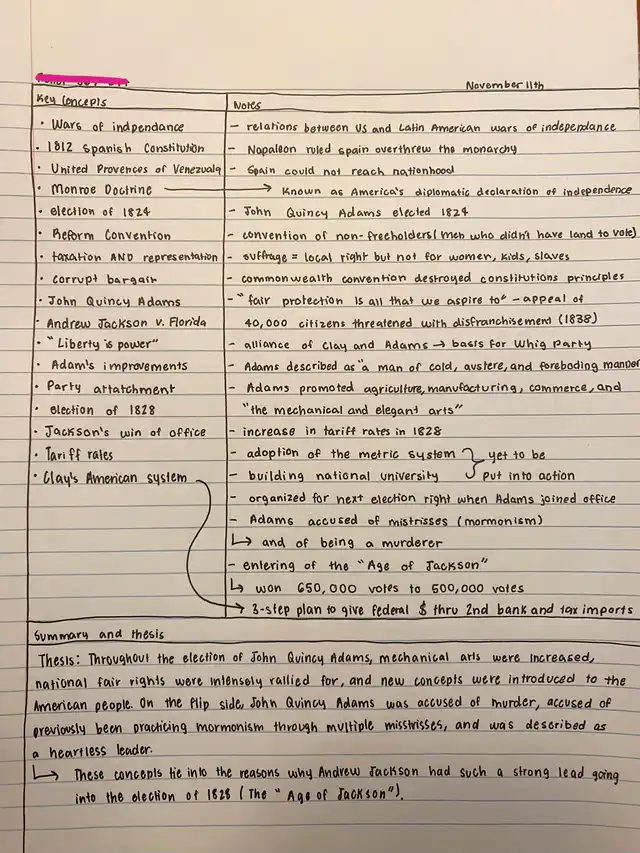 November 11th
Key Concepts
Notes
· Wars of indpendance
- relations between US and Latin American wars of independance
· 1812 Spanish Constitution
- Napoleon ruled spain overthrew the monarchy
· United Provences of Venezuala
- Spain could not reach nationhood
· Monroe Doctrine → Known as America's diplomatic declaration of independence
· election of 1824
- John Quincy Adams elected 1824
· Reform Convention
- convention of non-freeholders (men who didn't have land to vote)
· taxation AND representation
- suffrage = local right but not for women, kids, slaves
· corrupt bargain
- commonwealth convention destroyed constitutions principles
· John Quincy Adams
- "fair protection is all that we aspire to" - appeal of
· Andrew Jackson v. Florida
40,000 citizens threatened with disfranchisement (1838)
· "Liberty is power"
- alliance of Clay and Adams → basis for Whig Party
· Adam's improvements
- Adams described as "a man of cold, austere, and foreboding manner
· Party attatchment
- Adams promoted agriculture, manufacturing, commerce, and
· election of 1828
"the mechanical and elegant arts"
· Jackson's win of office
- increase in tariff rates in 1828
· Tariff rates
- adoption of the metric system } yet to be
· Clay's American system
- building national university } put into action
- organized for next election right when Adams joined office
- Adams accused of mistrisses (mormonism)
↳ and of being a murderer
- entering of the "Age of Jackson"
↳ won 650,000 votes to 500,000 votes
→ 3-step plan to give federal $ thru 2nd bank and tax imports
Summary and thesis
Thesis: Throughout the election of John Quincy Adams, mechanical arts were increased,
national fair rights were intensely rallied for, and new concepts were introduced to the
American people. On the flip side, John Quincy Adams was accused of murder, accused of
previously been practicing mormonism through multiple misstrisses, and was described as
a heartless leader.
↳ These concepts tie into the reasons why Andrew Jackson had such a strong lead going
into the election of 1828 (The "Age of Jackson").